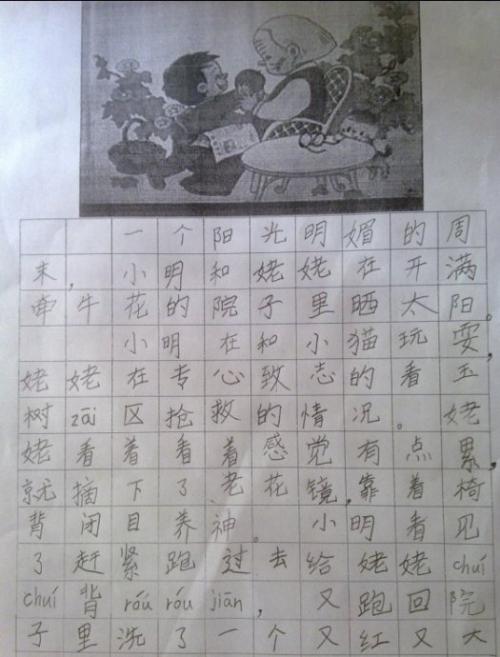 一个阳光明媚的周
末，小明和姥姥在开满
牵牛花的院子里晒太阳。
小明在和小猫玩耍，
姥姥在专心致志的看玉
树zāi区抢救的情况。姥
姥看着看着感觉有点累，
就摘下了老花镜，靠着椅
背闭目养神。小明看见
了赶紧跑过去给姥姥chuí
chuí背róu róu jiān，又跑回院
子里洗了一个又红又大